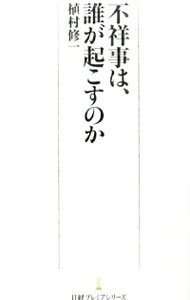 不祥事は、
誰が起こすのか
植村修一
日経プレミアシリーズ